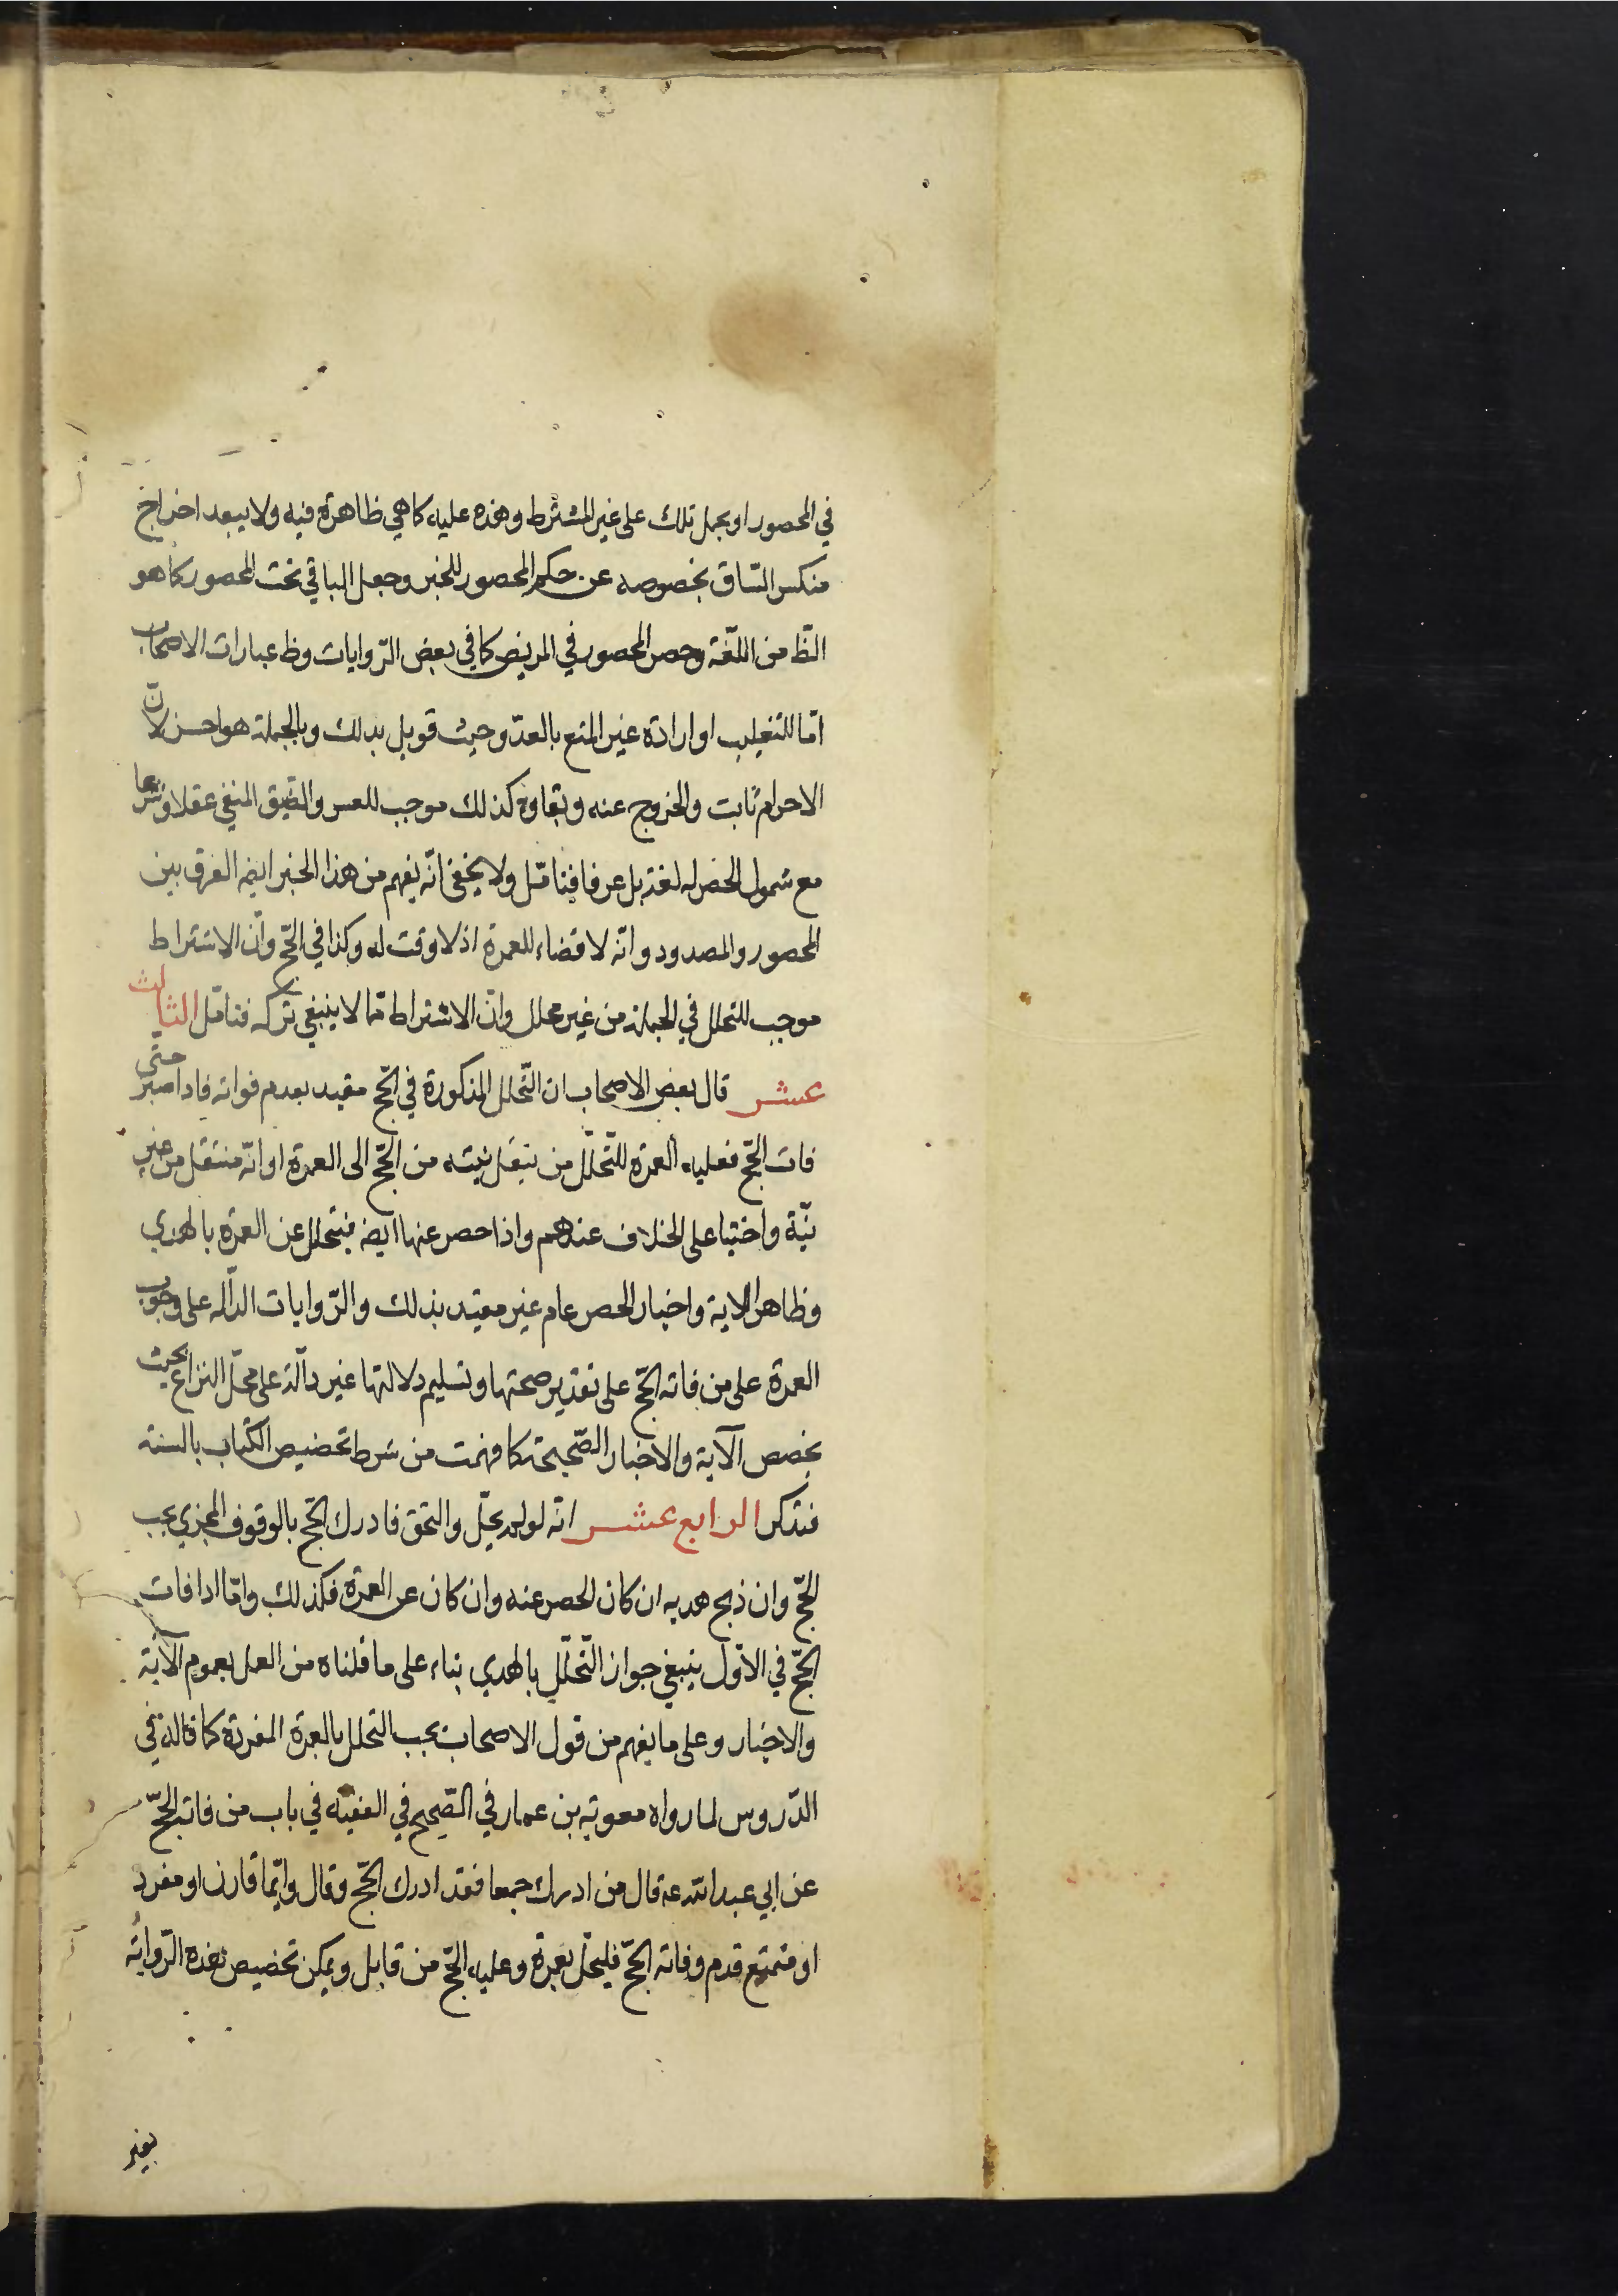 في المحصور او يحمل تلك على غير المشترط وهذه عليه كما هي ظاهرة فيه ولا يبعد اخراج
منكس الساق بخصوصه عن حكم المحصور للخبر وجعل الباقي تحت المحصور كما هو
الظّ من اللّغة وحصر المحصور في المريض كما في بعض الرّوايات وظ عبارات الاصحاب
امّا للتغليب او ارادة غير المنع بالعدّو حيث قوبل بذلك وبالجملة هو احسن لانّ
الاحرام ثابت والخروج عنه وبقاوه كذلك موجب للعسر والضّيق المنفي عقلا وشرعا
مع شمول الحصر له لغة بل عرفا فتامّل ولا يخفى انّه يفهم من هذا الخبر ايضه الفرق بين
المحصور والمصدود وانّه لا قضاء للعمرة اذ لا وقت له وكذا في الحجّ وانّ الاشتراط
موجب للتحلل في الجملة من غير محلل وانّ الاشتراط ممّا لا ينبغي تركه فتامّل الثالث
عشر قال بعض الاصحاب ان التّحلل المذكورة في الحجّ مقيد بعدم فواته فاذا صبر حتى
فات الحجّ فعليه العمرة للتّحلّل من ينقل نيته من الحجّ الى العمرة او انّه منتقل من غير
نيّة واختيا على الخلاف عندهم واذا حصر عنها ايضه فيتحلل عن العمرة بالهدي
وظاهر الاية واخبار الحصر عام غير مقيد بذلك والرّوايات الدالّه على وجوب
العمرة على من فاته الحجّ على تقدير صحتها وتسليم دلالتها غير دالّة على محلّ النزاع بحيث
يخصص الآية والاخبار الصّحيحة كما فهمت من شرط تخصيص الكتاب بالسنة
فتذكر الرابع عشر انّه لو لم يحلّ والتحق فادرك الحجّ بالوقوف المجزي يجب
الحجّ وان ذبح هديه ان كان الحصر عنه وان كان عن العمرة فكذلك وامّا اذا فات
الحجّ في الاوّل ينبغي جواز التّحلّل بالهدي بناء على ما قلناه من العمل بعموم الآية
والاخبار وعلى ما يفهم من قول الاصحاب يجب التحلل بالعمرة المفردة كما قاله في
الدّروس لما رواه معوية بن عمار في الصّحيح في الفقيه في باب من فاته الحجّ
عن ابي عبد الله عه قال من ادرك جمعا فقد ادرك الحجّ وقال وايّما قارن او مفرد
او متمتع قدم وفاته الحجّ فليحلّ بعمرة وعليه الحجّ من قابل ويمكن تخصيص هذه الرّواية
بغير